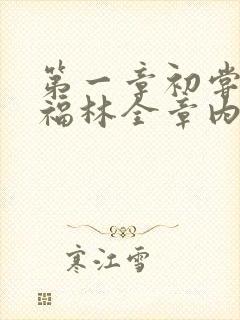 第一章初尝
福林全章内
寒江雪